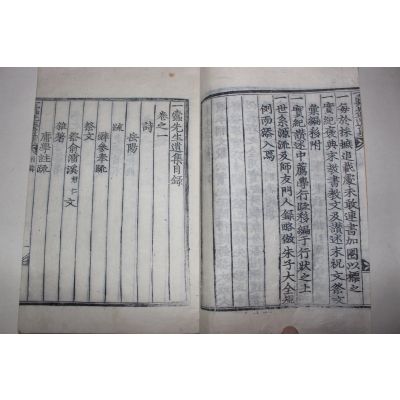 一每於採摭進藏處末敢連書加圈以標之
一實紀褒典末敎書敎文及讃述末祝文祭文
彙編移附
一實紀讃述中薦學行疏移編于行狀之上
一世系源流及師友門人錄略倣朱子大全
例而添入焉
一蠹先生遺集目錄
卷之一
詩
岳陽
疏
辭參奉疏
祭文
祭俞㵢溪 文
雜著
庸學註疏